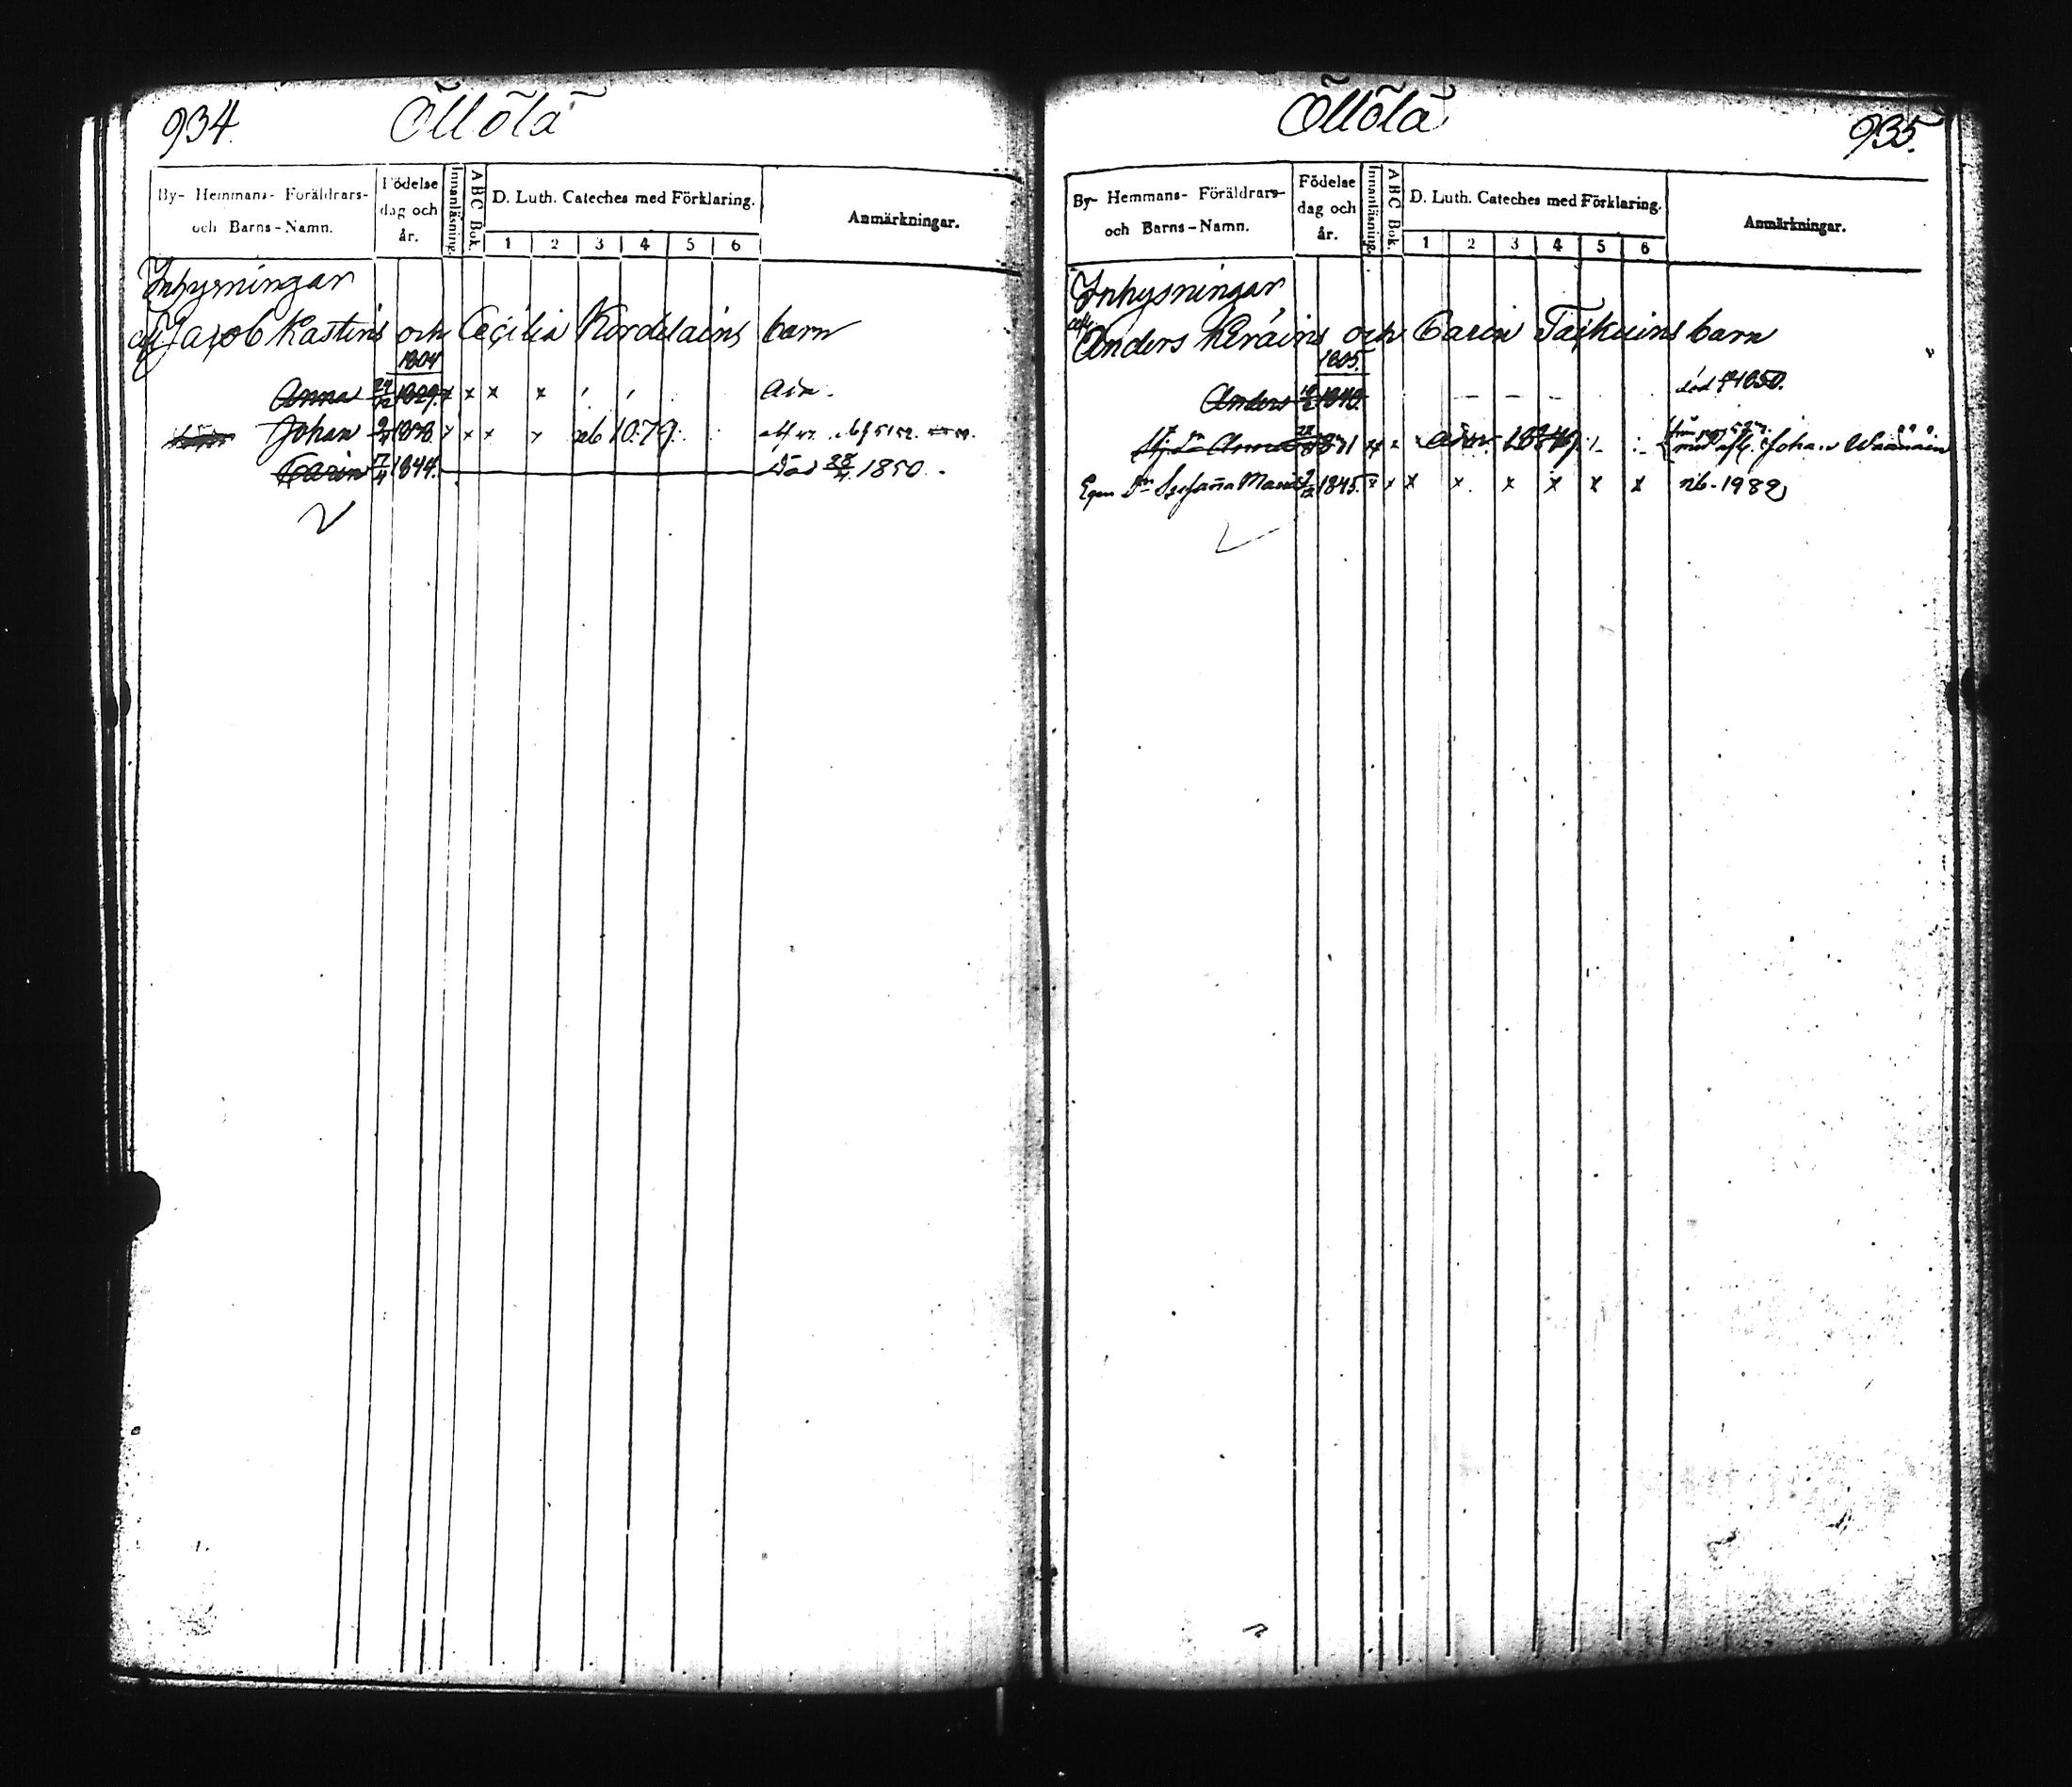 934.
Öllölä
By- Hemmans- Föräldrars- och Barns-Namn.
Födelse dag och år.
Innanläsning.
ABC Bok.
D. Luth. Cateches med Förklaring.
1 2 3 4 5 6
Anmärkningar.
Inhysningar
afl Jacob Kastins och Cecilia Kordelains barn
1804
Anna 24/12 1829. x x x x
Johan 1838. x x x x nb 1079.
Carin 17/4 1844. Död 28/4 1850.
Öllölä
935.
By- Hemmans- Föräldrars- och Barns-Namn.
Födelse dag och år.
Innanläsning.
ABC Bok.
D. Luth. Cateches med Förklaring.
1 2 3 4 5 6
Anmärkningar.
Inhysningar
Anders Keräins och Carin Taskuins barn
1805.
Anders 1840. död 1850.
Anna Johan Wäänäin
Egen Dr Maria 1845. x x x x x x x nb. 1982